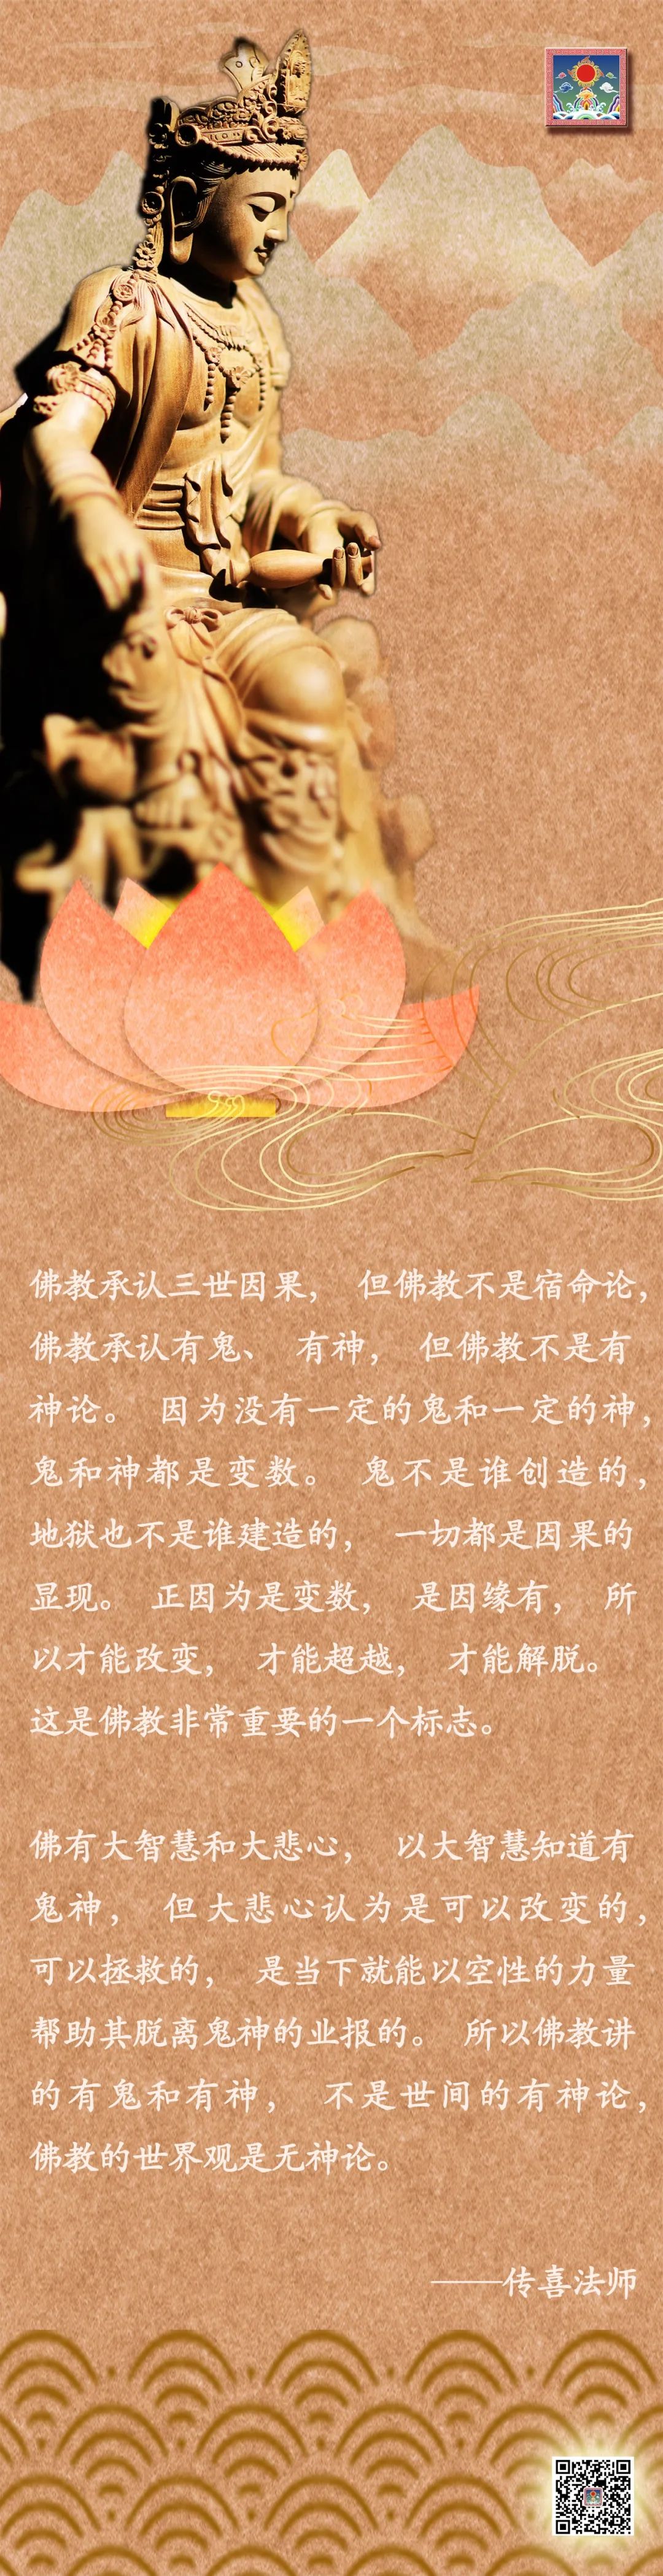 佛教承认三世因果， 但佛教不是宿命论，
佛教承认有鬼、 有神， 但佛教不是有
神论。 因为没有一定的鬼和一定的神，
鬼和神都是变数。 鬼不是谁创造的，
地狱也不是谁建造的， 一切都是因果的
显现。 正因为是变数， 是因缘有， 所
以才能改变， 才能超越， 才能解脱。
这是佛教非常重要的一个标志。
佛有大智慧和大悲心， 以大智慧知道有
鬼神， 但大悲心认为是可以改变的，
可以拯救的， 是当下就能以空性的力量
帮助其脱离鬼神的业报的。 所以佛教讲
的有鬼和有神， 不是世间的有神论，
佛教的世界观是无神论。
——传喜法师